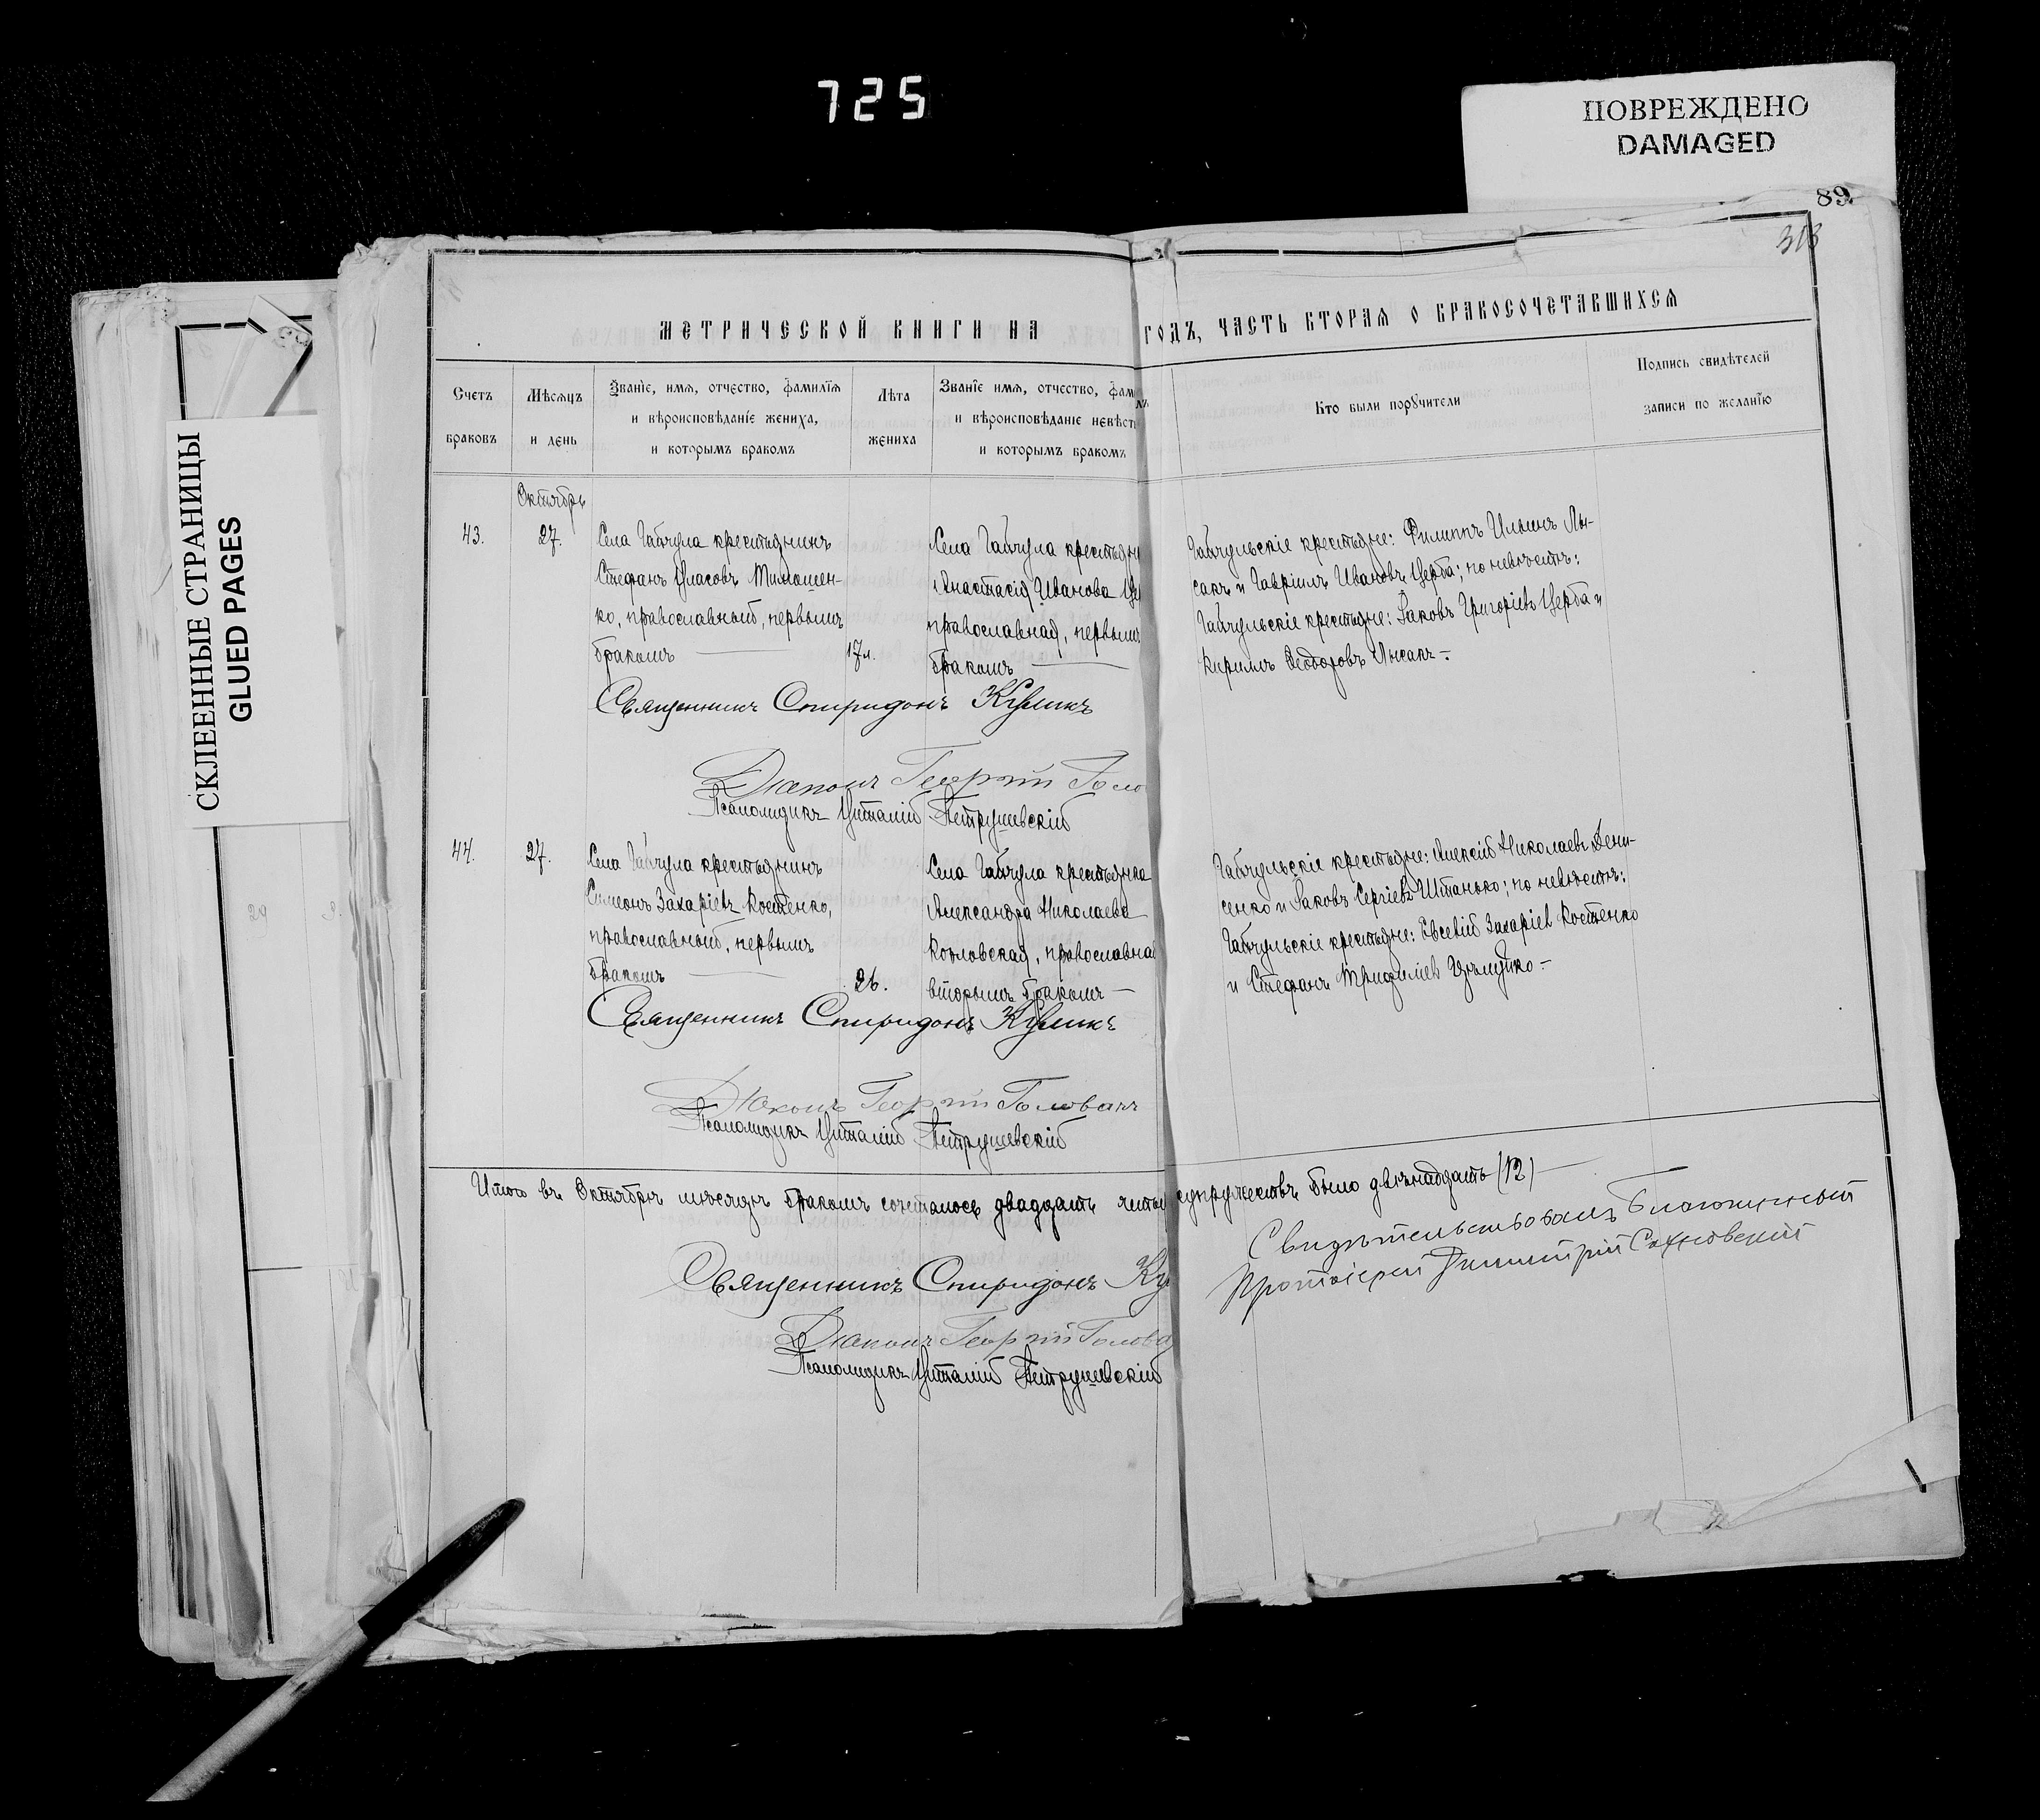 725
ПОВРЕЖДЕНО
DAMAGED
89
313
СКЛЕЕННЫЕ СТРАНИЦЫ
GLUED PAGES
МЕТРИЧЕСКОЙ КНИГИ НА ГОДЪ, ЧАСТЬ ВТОРАЯ О БРАКОСОЧЕТАВШИХСЯ
Счетъ
браковъ
Мѣсяцъ
и день
Званіе, имя, отчество, фамилія
и вѣроисповѣданіе жениха,
и которымъ бракомъ
Лѣта
жениха
Званіе имя, отчество, фам
и вѣроисповѣданіе невѣст
и которымъ бракомъ
Кто были поручители
Подпись свидѣтелей
записи по желанію
Октябрь
43.
27.
Села Гайчула крестьянинъ
Стефанъ Уласовъ Тимошен-
ко, православный, первымъ
бракомъ
17 л.
Села Гайчула крестьян
Анастасія Иванова
православная, первымъ
бракомъ
Гайчульскіе крестьяне: Филиппъ Ильинъ Лы-
сакъ и Гавріилъ Ивановъ Церба; по невѣстѣ:
Гайчульскіе крестьяне: Іаковъ Григоріевъ Церба и
Кириллъ Ѳеодоровъ Лысакъ
Священникъ Спиридонъ Куликъ
Діаконъ Георгій Голо
Псаломщикъ Виталій Петрушевскій
44.
27.
Села Гайчула крестьянинъ
Симеонъ Захаріевъ Костенко,
православный, первымъ
бракомъ
26.
Села Гайчула крестьянка
Александра Николаева
Котловская, православна
вторымъ бракомъ
Гайчульскіе крестьяне: Алексій Николаевъ Дени-
сенко и Іаковъ Сергіевъ Штанько; по невѣстѣ:
Гайчульскіе крестьяне: Евсевій Захаріев Костенко
и Стефанъ Трифиліев
Священникъ Спиридонъ Куликъ
Діаконъ Георгій Голованъ
Псаломщикъ Виталій Петрушевскій
Итого въ Октябрѣ мѣсяцѣ бракомъ сочеталось двадцать четы супружествъ было двѣнадцать (12)
Священникъ Спиридонъ Ку
Діаконъ Георгій Голова
Псаломщикъ Виталій Петрушевскій
Свидѣтельствовалъ Благочинный
Протоіерей Димитрій Сахновскій